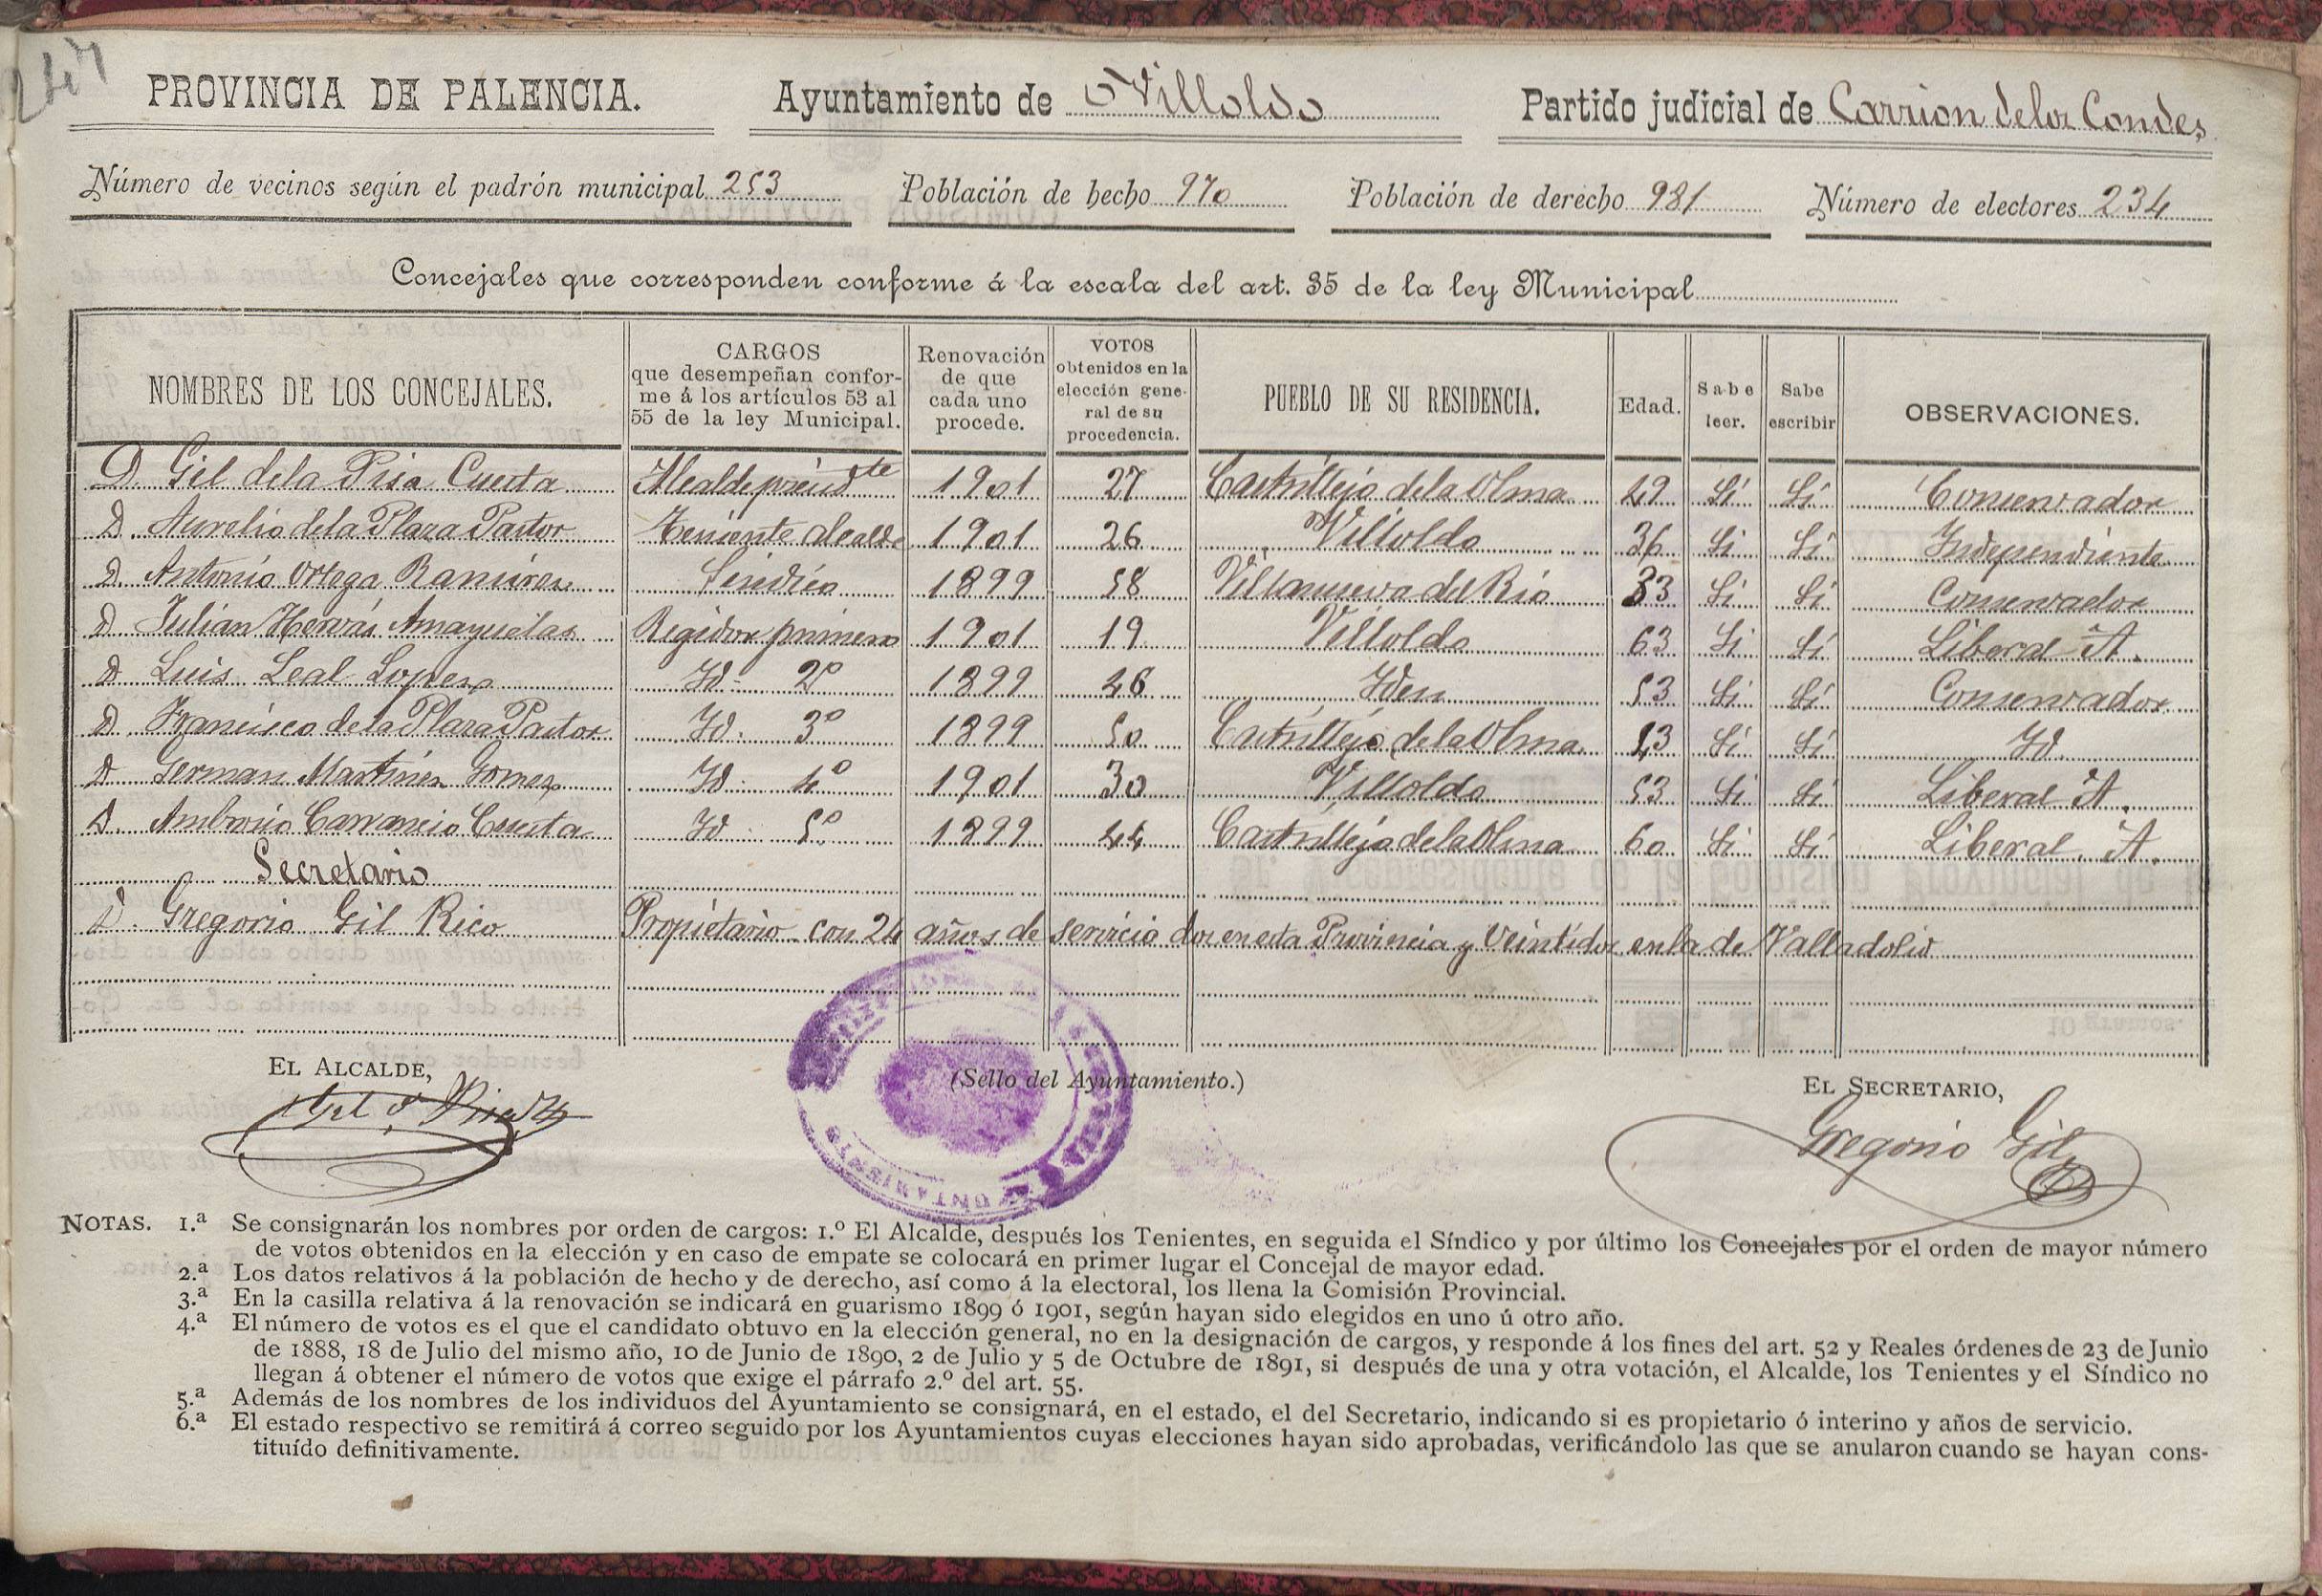 247
PROVINCIA DE PALENCIA. Ayuntamiento de Villoldo Partido judicial de Carrion de los Condes
Número de vecinos según el padrón municipal 253 Población de hecho 970 Población de derecho 981 Número de electores 234
Concejales que corresponden conforme á la escala del art. 35 de la ley Municipal
NOMBRES DE LOS CONCEJALES. CARGOS que desempeñan confor-me á los artículos 53 al 55 de la ley Municipal. Renovación de que cada uno procede. VOTOS obtenidos en la elección gene-ral de su procedencia. PUEBLO DE SU RESIDENCIA. Edad. Sabe leer. Sabe escribir OBSERVACIONES.
D Gil de la Pisa Cuesta Alcalde presidte 1901 27 Castrillejo de la Olma 49 Si Si Conservador
D. Aurelio de la Plaza Pastor Teniente Alcalde 1901 26 Villoldo 36 Si Si Independiente
D. Antonio Ortega Ramirez Sindico 1899 58 Villanueva del Rio 33 Si Si Conservador
D. Julian Hervás Amayuelas Regidor primero 1901 19 Villoldo 63 Si Si Liberal A.
D Luis Leal Lopez Id. 2º 1899 46 Idem 53 Si Si Conservador
D. Francisco de la Plaza Pastor Id. 3º 1899 50 Castrillejo de la Olma 43 Si Si Id.
D German Martinez Gomez Id. 4º 1901 30 Villoldo 53 Si Si Liberal A.
D. Ambrosio Carrancio Cuesta Id. 5º 1899 44 Castrillejo de la Olma 60 Si Si Liberal A.
Secretario
D. Gregorio Gil Rico Propietario con 24 años de servicio dos en esta Provincia y veintidos en la de Valladolid
EL ALCALDE, (Sello del Ayuntamiento.) EL SECRETARIO,
Gregorio Gil
AYUNTAMIENTO
NOTAS. 1.ª Se consignarán los nombres por orden de cargos: 1.º El Alcalde, después los Tenientes, en seguida el Síndico y por último los Concejales por el orden de mayor número
de votos obtenidos en la elección y en caso de empate se colocará en primer lugar el Concejal de mayor edad.
2.ª Los datos relativos á la población de hecho y de derecho, así como á la electoral, los llena la Comisión Provincial.
3.ª En la casilla relativa á la renovación se indicará en guarismo 1899 ó 1901, según hayan sido elegidos en uno ú otro año.
4.ª El número de votos es el que el candidato obtuvo en la elección general, no en la designación de cargos, y responde á los fines del art. 52 y Reales órdenes de 23 de Junio
de 1888, 18 de Julio del mismo año, 10 de Junio de 1890, 2 de Julio y 5 de Octubre de 1891, si después de una y otra votación, el Alcalde, los Tenientes y el Síndico no
llegan á obtener el número de votos que exige el párrafo 2.º del art. 55.
5.ª Además de los nombres de los individuos del Ayuntamiento se consignará, en el estado, el del Secretario, indicando si es propietario ó interino y años de servicio.
6.ª El estado respectivo se remitirá á correo seguido por los Ayuntamientos cuyas elecciones hayan sido aprobadas, verificándolo las que se anularon cuando se hayan cons-
tituído definitivamente.